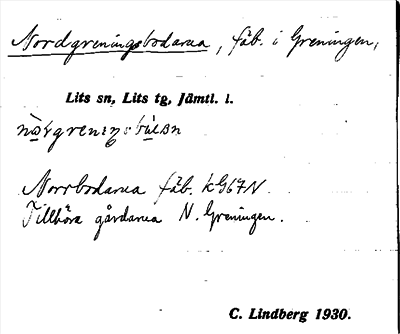 Nordgreningsbodarna, fäb. i Greningen,
Lits sn, Lits tg, Jämtl. l.
Norrbodarna fäb. kG67N.
Tillhöra gårdarna N. Greningen.
C. Lindberg 1930.